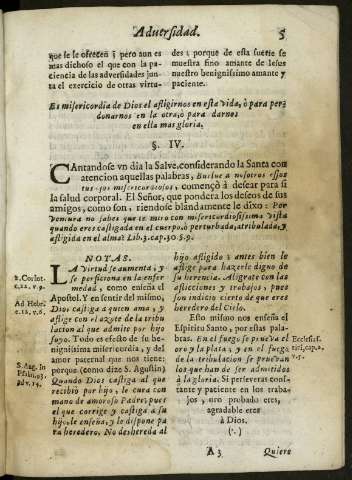 Adversidad. 5
que se le ofrecen; pero aun es
mas dichoso el que con la pa-
ciencia de las adversidades jun-
ta el exercicio de otras virtu-
des; porque de esta suerte se
muestra fino amante de Iesus
nuestro benignissimo amante y
paciente.
Es misericordia de Dios el afligirnos en esta vida, ò para per-
donarnos en la otra, ò para darnos
en ella mas gloria.
§. IV.
CAntandose vn dia la Salve, considerando la Santa con
atencion aquellas palabras, Buelve a nosotros essos
tus ojos misericordiosos, començò à desear para si
la salud corporal. El Señor, que pondera los deseos de sus
amigos, como son, riendose blandamente le dixo: Por
ventura no sabes que te miro con misericordiosissima vista
quando eres castigada en el cuerpo, ò perturbada, atribulada, y
afligida en el alma? Lib. 3. cap. 30. §. 9.
NOTAS.
LA Virtud se aumenta, y
se perficiona en la enfer-
medad, como enseña el
Apostol. Y en sentir del mismo,
Dios castiga à quien ama, y
aflige con el azote de la tribu-
lacion al que admite por hijo
suyo. Todo es efecto de su be-
nignissima misericordia, y del
amor paternal que nos tiene:
porque (como dize S. Agustin)
Quando Dios castiga al que
recibiò por hijo, le cura con
mano de amoroso Padre, pues
el que corrige y castiga a su
hijo, le enseña, y le dispone pa-
ra heredero. No deshereda al
2. Corint.
c. 12. v. 9.
Ad Hebr.
c. 12. v. 6.
S. Aug. in
Psalm.
adv. 14.
hijo afligido; antes bien le
aflige para hazerle digno de
su herencia. Alegrate con las
aflicciones y trabajos, pues
son indicio cierto de que eres
heredero del Cielo.
Eso mismo nos enseña el
Espiritu Santo, por estas pala-
bras. En el fuego se prueva el
oro y la plata; y en el fuego
de la tribulacion se prueban
los que han de ser admitidos
à la gloria. Si perseveras cons-
tante y paciente en los traba-
jos, oro probado eres,
agradable eres
à Dios.
(∴)
Ecclesias-
tici, cap. 2.
v. 5.
A 3 Quiere